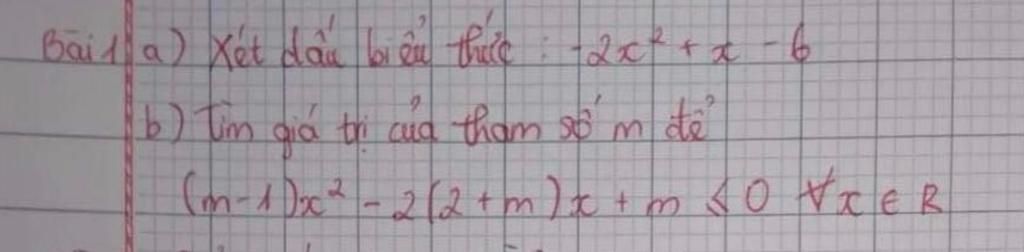 Bài 1 a) Xét dấu biểu thức : -2x² + x - 6
b) Tìm giá trị của tham số m để
(m-1)x² - 2(2+m)x + m ≤ 0 ∀x ∈ R